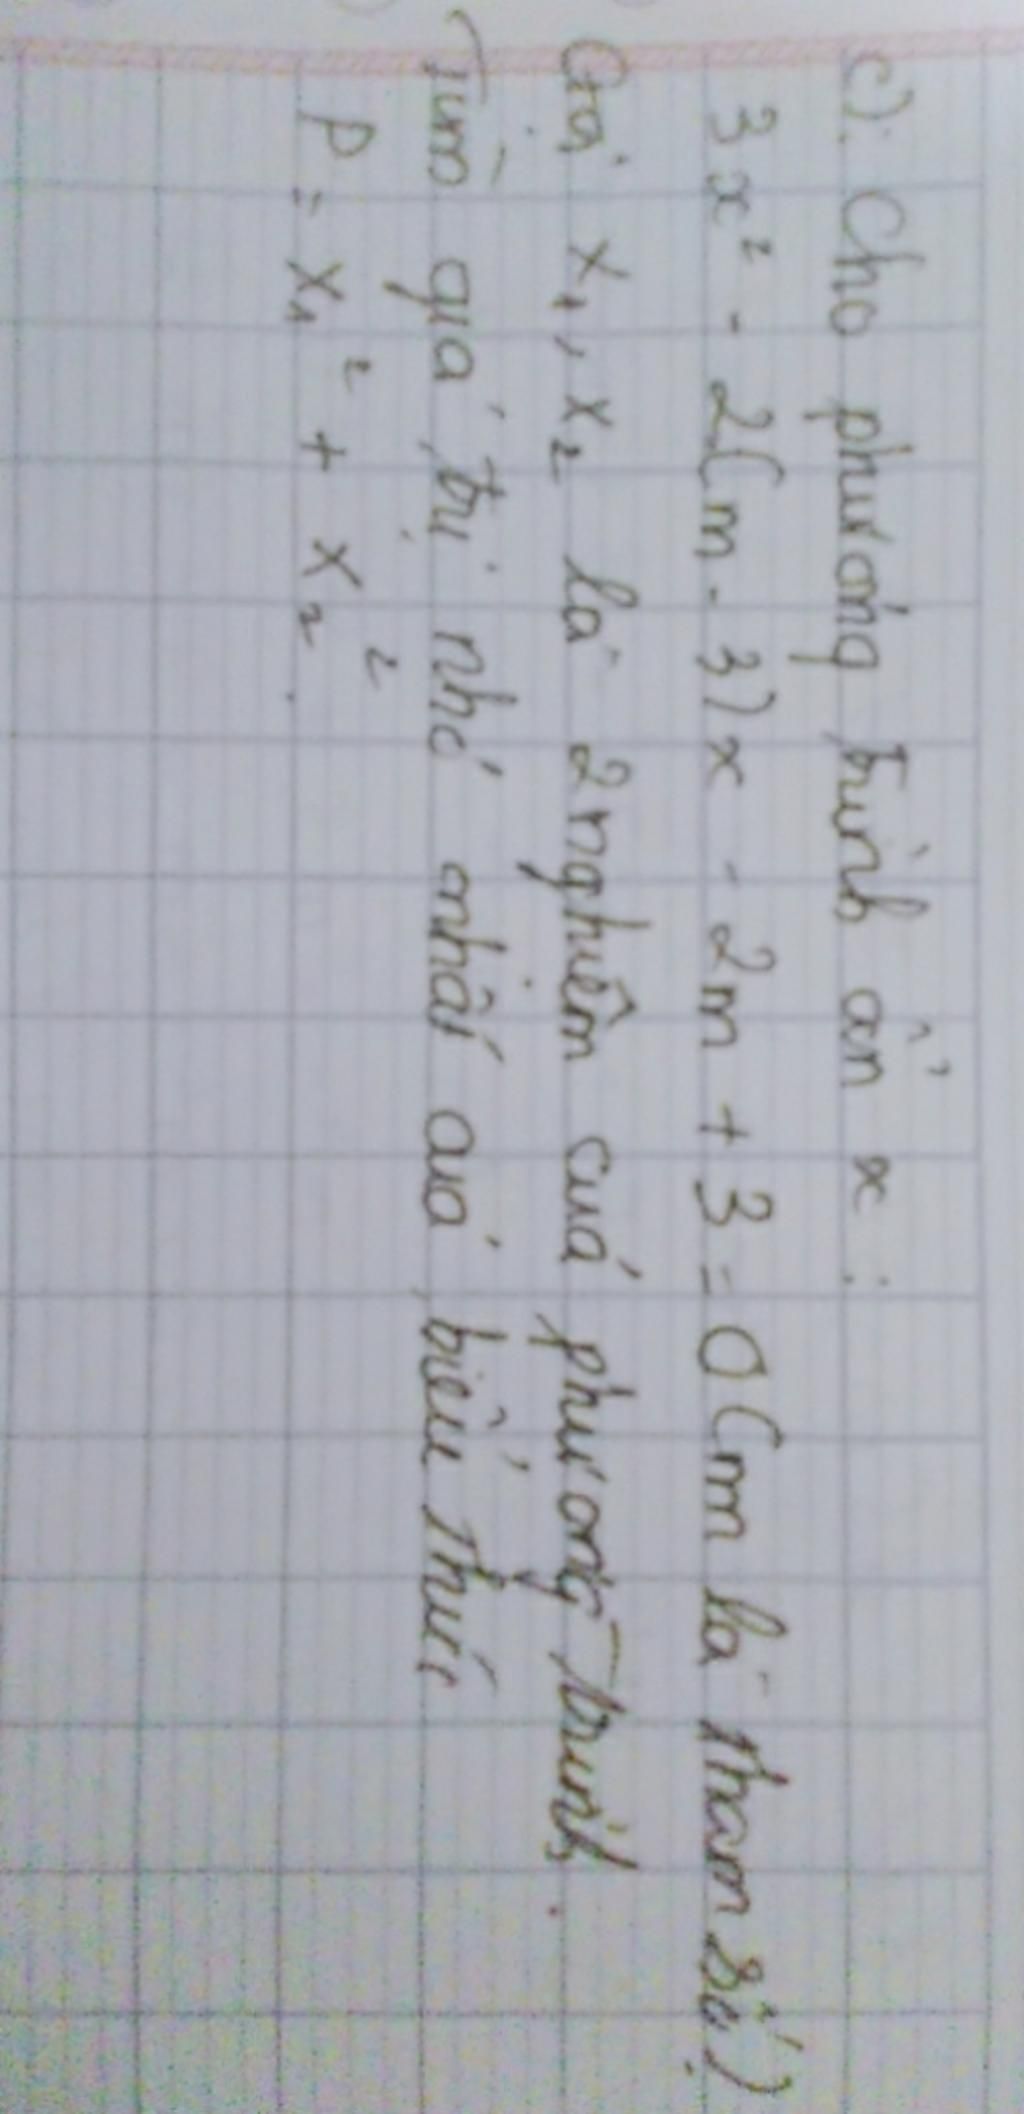 c). Cho phương trình ẩn x :
3x² - 2(m - 3)x - 2m + 3 = 0 (m là tham số)
Gọi x₁, x₂ là 2 nghiệm của phương trình.
Tìm giá trị nhỏ nhất của biểu thức
P = x₁² + x₂².